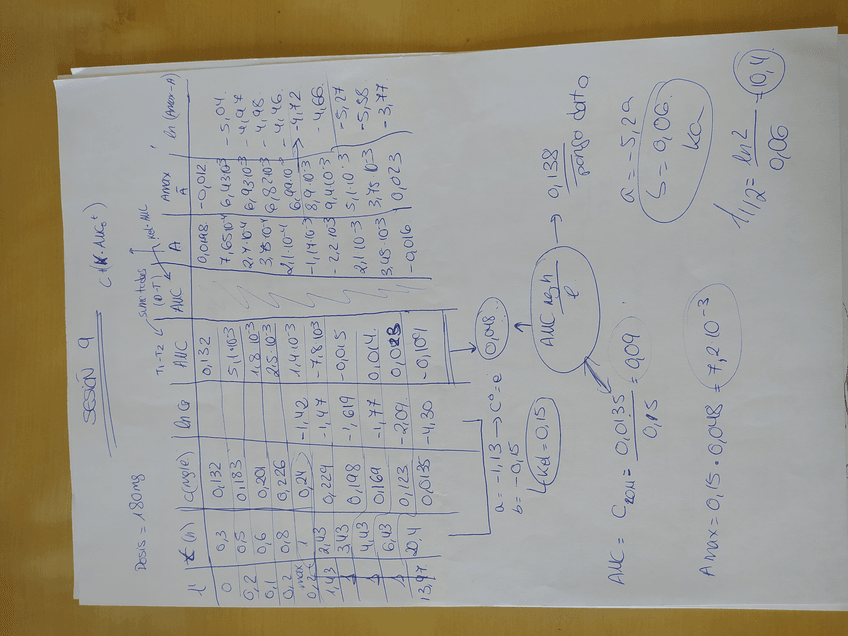 SESIÓN 9
Dosis = 180mg
t' t(h) C(mg/e) ln Cp AUC AUC A Amax - A ln(Amax-A)
0 0,3 0,132 0,132 0,0198 -0,012
0,2 0,5 0,183 5,1·10⁻³ 7,65·10⁻⁴ 6,43·10⁻³ -5,04
0,1 0,6 0,201 1,8·10⁻³ 2,7·10⁻⁴ 6,93·10⁻³ -4,97
0,2 0,8 0,226 2,5·10⁻³ 3,75·10⁻⁴ 6,82·10⁻³ -4,98
max 0,2 1 0,24 -1,42 1,4·10⁻³ 2,1·10⁻⁴ 6,99·10⁻³ -4,96
1,43 2,43 0,229 -1,47 -7,8·10⁻³ -1,17·10⁻³ 8,9·10⁻³ -4,72
1 3,43 0,198 -1,619 -0,015 -2,2·10⁻³ 9,4·10⁻³ -4,66
1 4,43 0,169 -1,77 0,014 2,1·10⁻³ 5,1·10⁻³ -5,27
6,43 0,123 -2,09 0,023 3,45·10⁻³ 3,75·10⁻³ -5,58
13,97 20,4 0,0135 -4,30 -0,109 -0,016 0,023 -3,77
→ 0,048
a = -1,13 → C° = e
b = -0,15
↳ Kel = 0,15
AUC mg h/e → 0,138
AUC = = 0,0135/0,15 = 0,09
a = -5,29
b = 0,06
Ka
Amax = 0,15 · 0,048 = 7,2·10⁻³
t1/2 = ln2/0,06 =